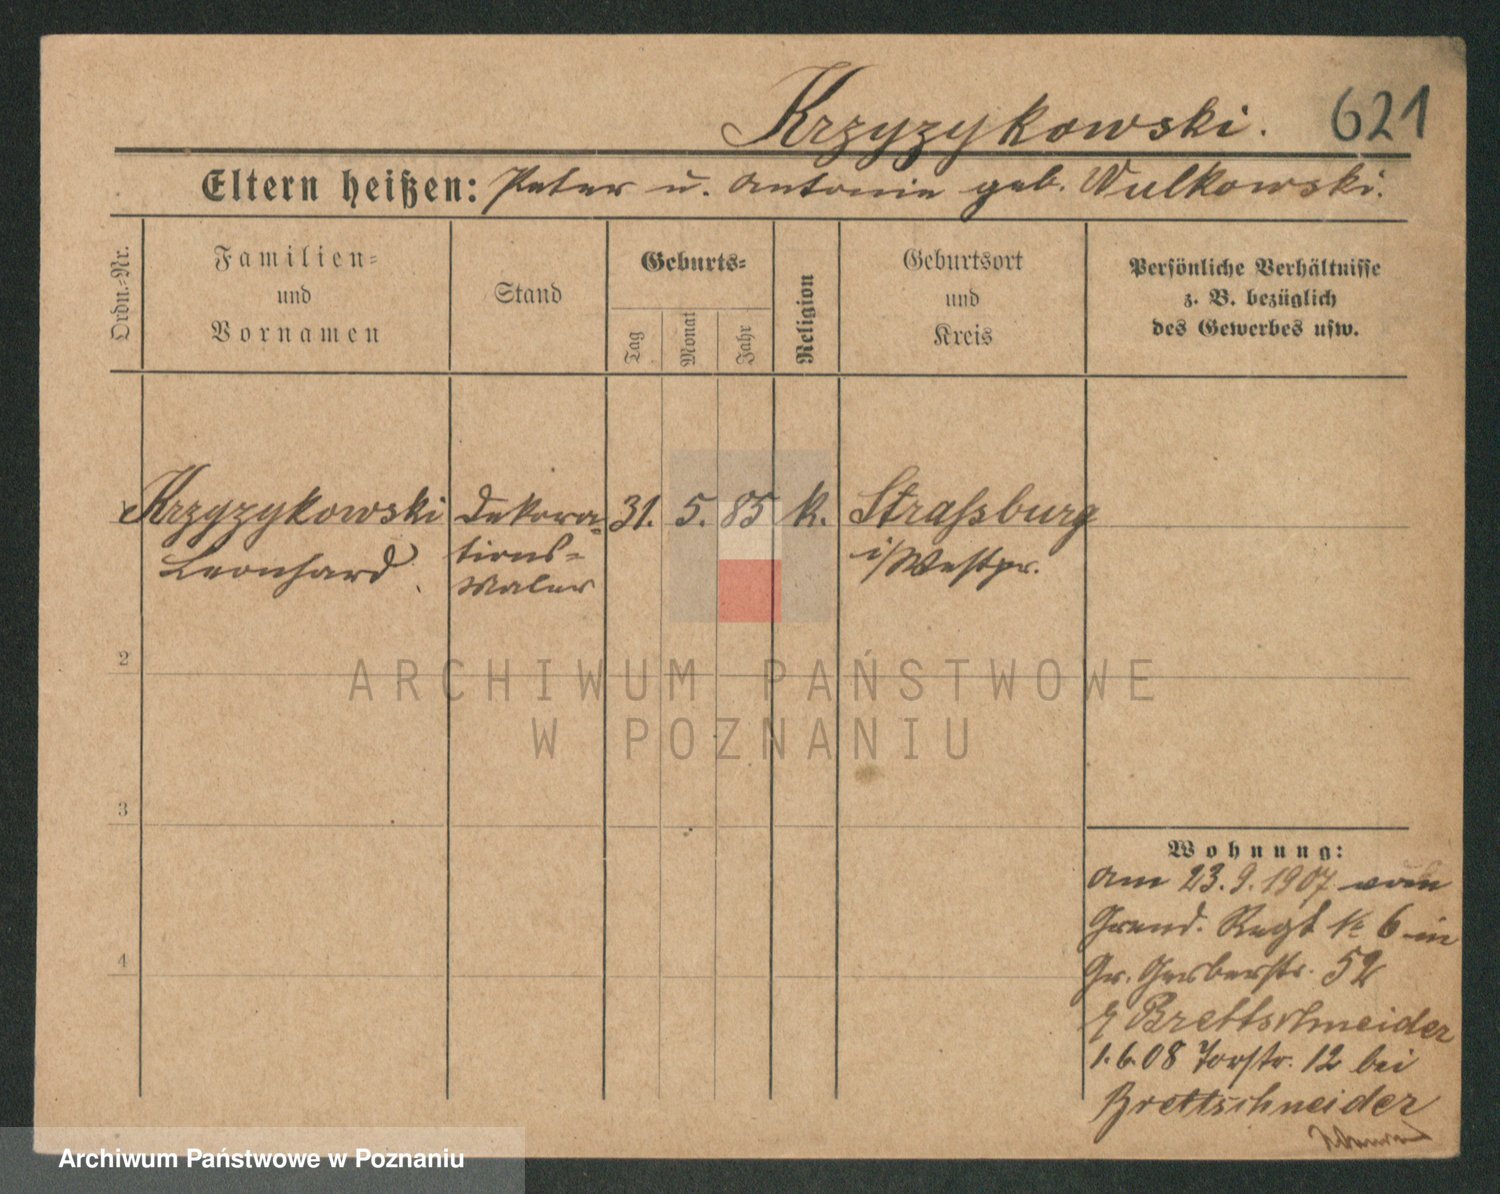 Krzyzykowski. 621
Eltern heißen: Peter u. Antonie geb. Wulkowski.
Ordn.-Nr.
Familien-
und
Vornamen
Stand
Geburts-
Tag
Monat
Jahr
Religion
Geburtsort
und
Kreis
Persönliche Verhältnisse
z. B. bezüglich
des Gewerbes usw.
Krzyzykowski Dekora- 31. 5. 85 k. Strassburg
Leonhard. tions- i/Westpr.
Maler
2
3
4
Wohnung:
Am 23.9.1907 vom
Grend. Regt № 6 in
Gr. Gerberstr. 52
Brettschneider
1.6.08 Torstr. 12 bei
Brettschneider
ARCHIWUM PAŃSTWOWE
W POZNANIU
Archiwum Państwowe w Poznaniu